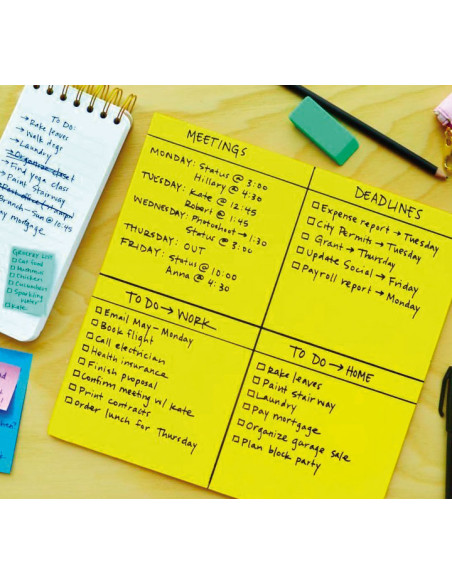 TO DO:
→Rake leaves
→Walk dog
→Laundry
→Organize closet
→Find yoga class
→Paint Stairway
Brunch-Sun @ 10:45
mortgage
GROCERY LIST
□ Cat food
□ Hummus
□ Chicken
□ Cucumbers
□ Sparkling
water
□ Kale
MEETINGS
MONDAY: Status @ 3:00
Hillary @ 4:30
TUESDAY: Kate @ 12:45
Robert @ 1:45
WEDNESDAY: Photoshoot → 1:30
Status @ 3:00
THURSDAY: OUT
FRIDAY: Status @ 10:00
Anna @ 4:30
DEADLINES
□ Expense report → Tuesday
□ City Permits → Tuesday
□ Grant → Thursday
□ Update Social → Friday
□ Payroll report → Monday
TO DO → WORK
□ Email May - Monday
□ Book flight
□ Call electrician
□ Health insurance
□ Finish proposal
□ Confirm meeting w/ Kate
□ Print contracts
□ Order lunch for Thursday
TO DO → HOME
□ Rake leaves
□ Paint Stairway
□ Laundry
□ Pay mortgage
□ Organize garage sale
□ Plan block party